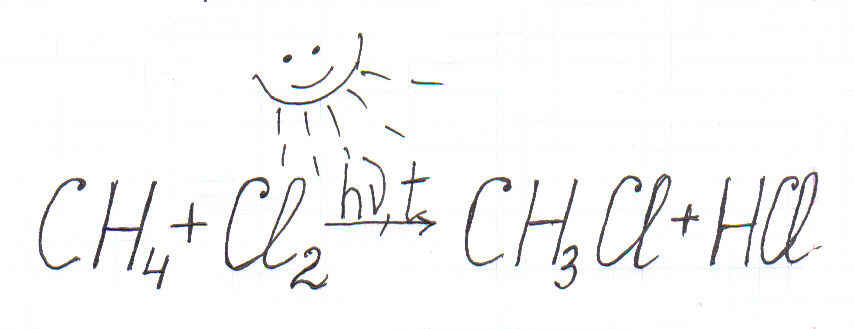 CH₄ + Cl₂ hν, t → CH₃Cl + HCl